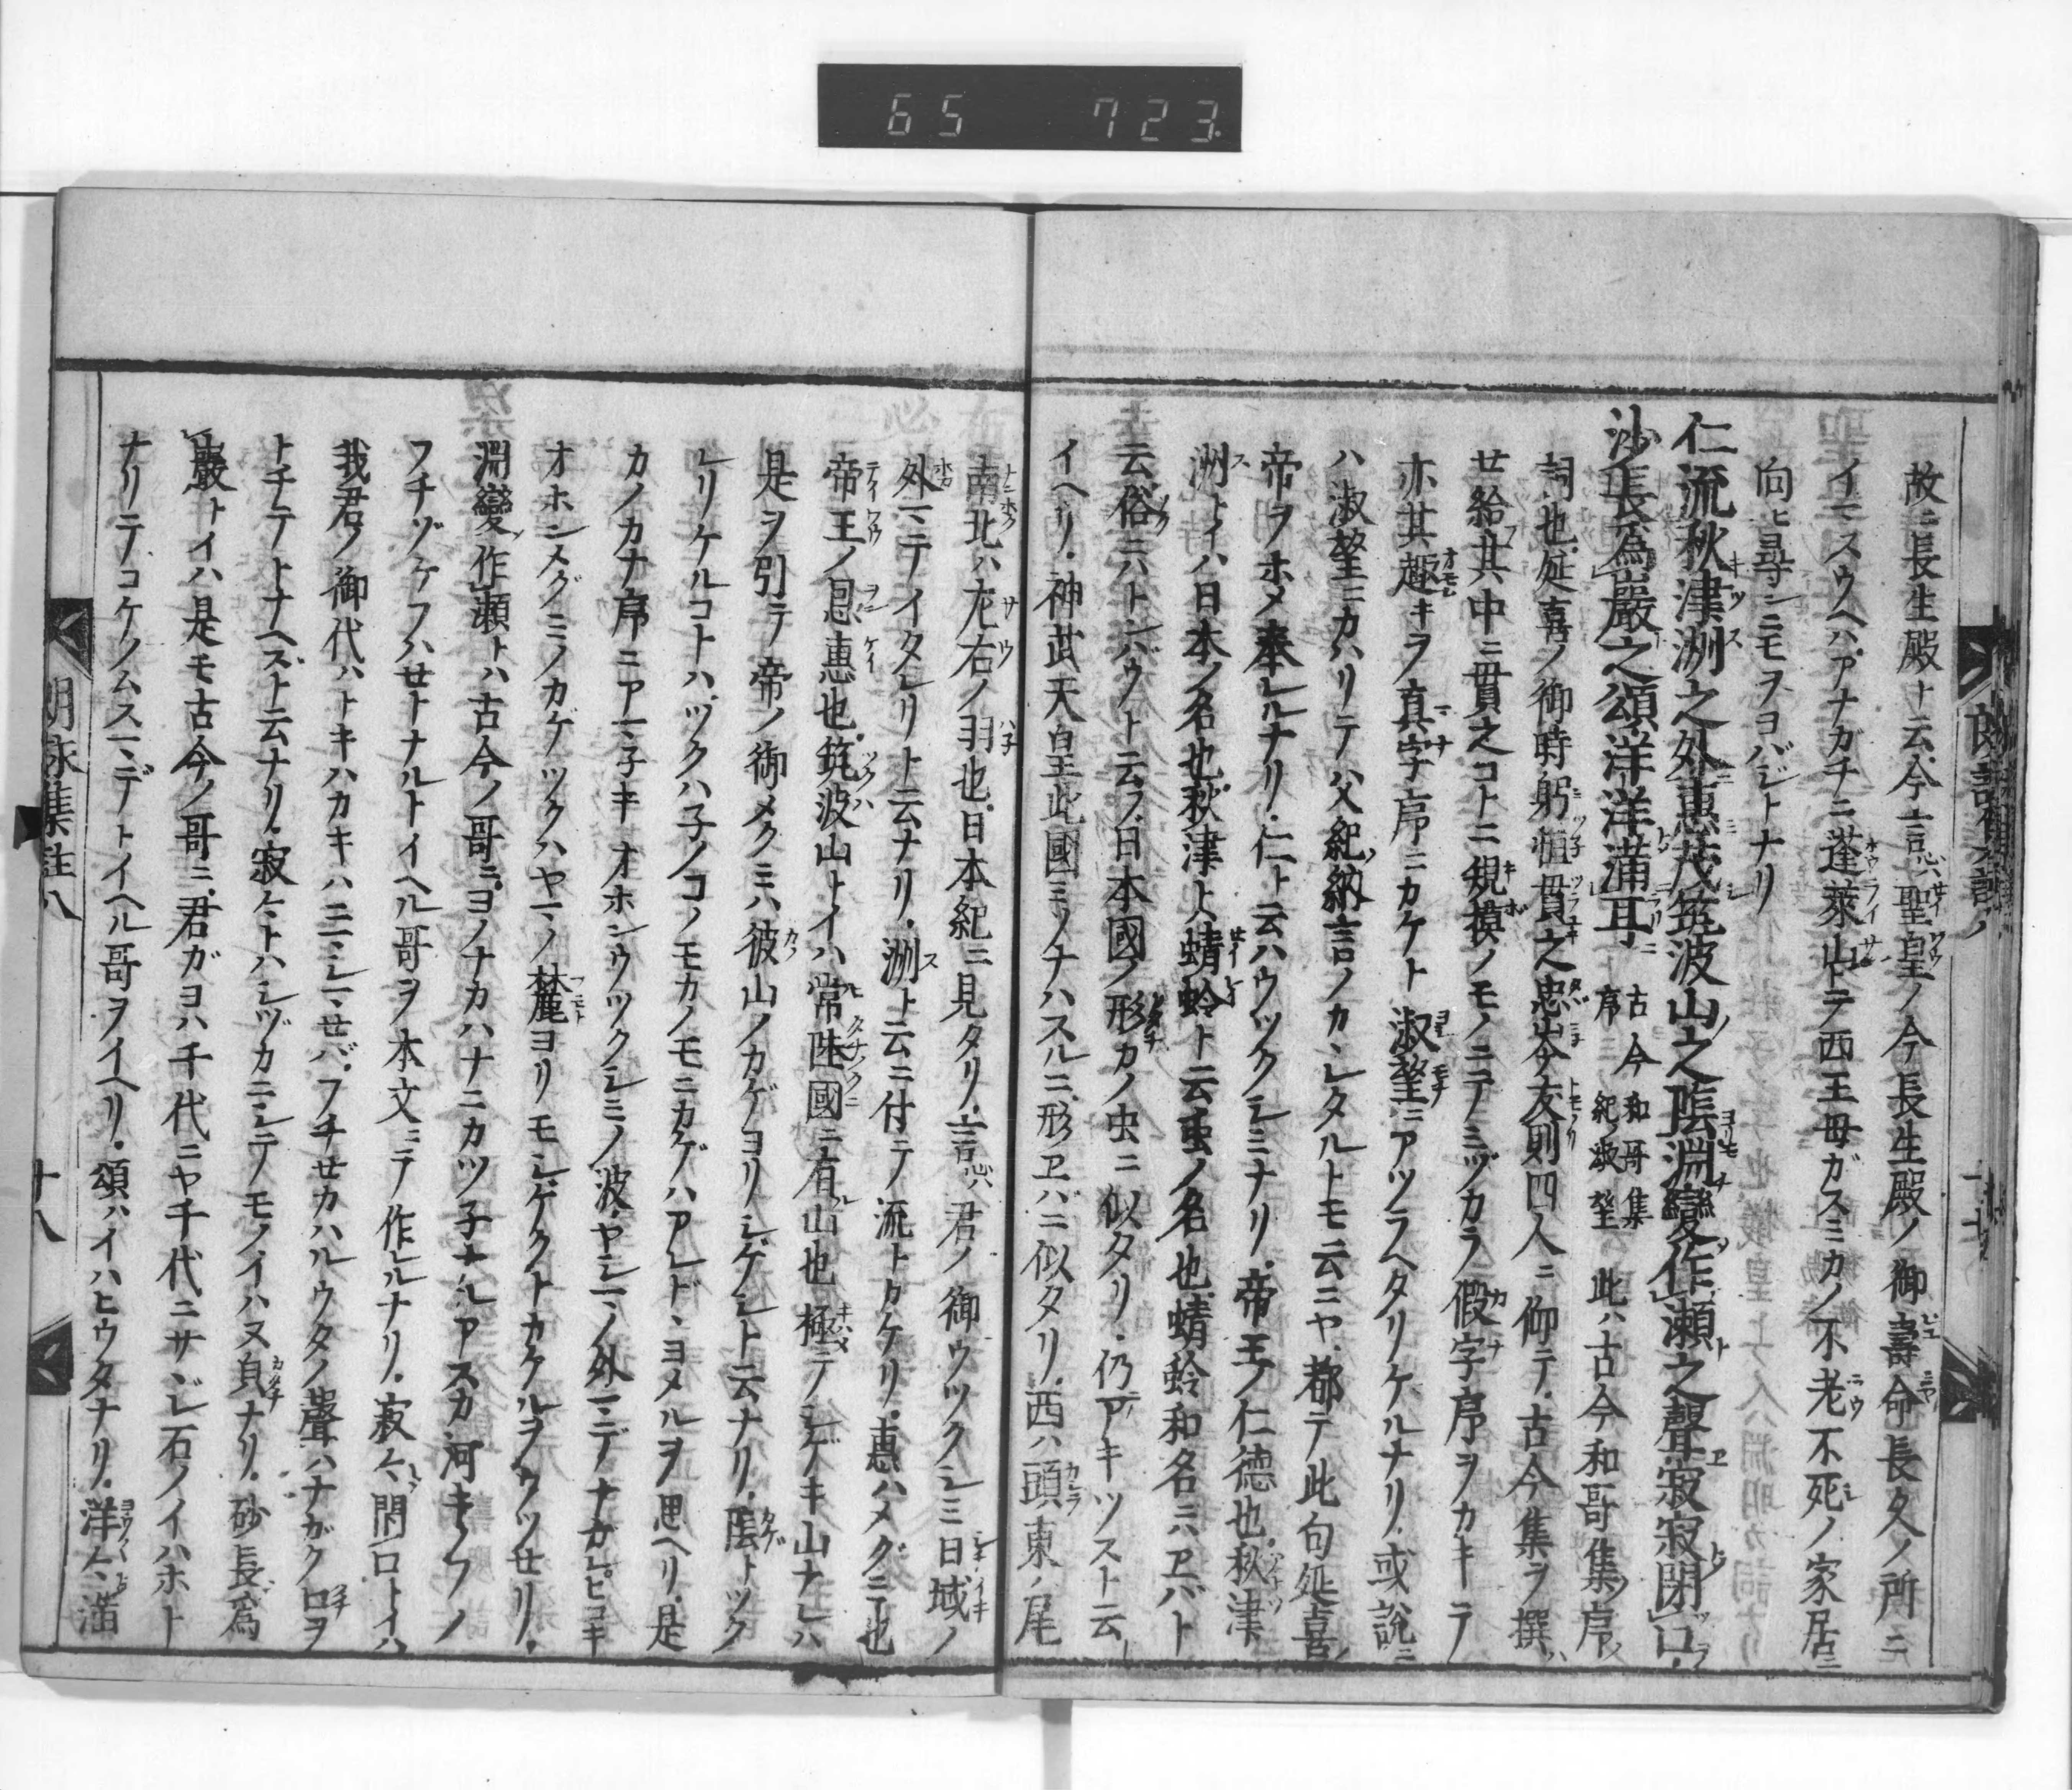 65 723
故ニ長生殿ト云今言心ハ聖皇ノ今長生殿ノ御壽命長久ノ所ニ
イマスウヘハアナガチニ蓬萊山トテ西王母ガスミカノ不老不死ノ家居ニ
向ヒ尋ンニモヲヨバジトナリ
仁流秋津洲之外惠茂筑波山之陰淵變作瀬之聲寂寂閇口
沙長爲巖之頌洋洋満耳 古今和哥集序 紀淑望 此ハ古今和哥集ノ序ノ
詞也延喜ノ御時躬恒貫之忠岑友則四人ニ仰テ古今集ヲ撰ハ
せ給フ其中ニ貫之コトニ規摸ノモノニテミヅカラ假字序ヲカキテ
亦其趣キヲ真字序ニカケト淑望ニアツラヘタリケルナリ或說ニ
ハ淑望ニカハリテ父紀納言ノカヽレタルトモ云ニヤ都テ此句延喜ノ
帝ヲホメ奉レルナリ仁ト云ハウツクシミナリ帝王ノ仁德也秋津
洲トイハ日本ノ名也秋津トハ蜻蛉ト云虫ノ名也蜻蛉和名ニハヱバト
云俗ニハトンバウト云フ日本國ノ形カノ虫ニ似タリ仍テアキツストヘ云
イヘリ神武天皇此國ミソナハスルニ形ヱバニ似タリ西ハ頭東ノ尾
南北ハ左右ノ羽也日本紀ニ見タリ言心ハ君ノ御ウツクシミ日域ノ
外マテイタレリト云ナリ洲ト云ニ付テ流トカケリ惠ハメグミ也
帝王ノ恩惠也筑波山トイハ常陸國ニ有ル山也極テシゲキ山ナレハ
是ヲ引テ帝ノ御メクミハ彼山ノカゲヨリシゲシト云ナリ陰トツク
レリケルコトハツクハ子ノコノモカノモニカゲハアレドヽヨメルヲ思ヘリ是
カノカナ序ニアマ子キオホンウツクシミノ波ヤシマノ外マデナガレヒロキ
オホンメグミノカゲツクハヤマノ麓ヨリモシゲクトカケルヲウツせリ
淵變作瀬トハ古今ノ哥ニヨノナカハナニカツ子ナルアスカ河キノフノ
フチゾケフハせトナルトイヘル哥ヲ本文ニテ作レルナリ寂々閇口トイハ
我君ノ御代ハトキハカキハニマシマせバフチせカハルウタノ聲ハナガク口ヲ
トヂテトナヘズト云ナリ寂々トハシヅカニシテモノイハヌ皃ナリ砂長爲
巖トイハ是モ古今ノ哥ニ君ガヨハ千代ニヤ千代ニサヾレ石ノイハホト
ナリテコケノムスマデトイヘル哥ヲイヘリ頌ハイハヒウタナリ洋々満
朗詠集註八 十八